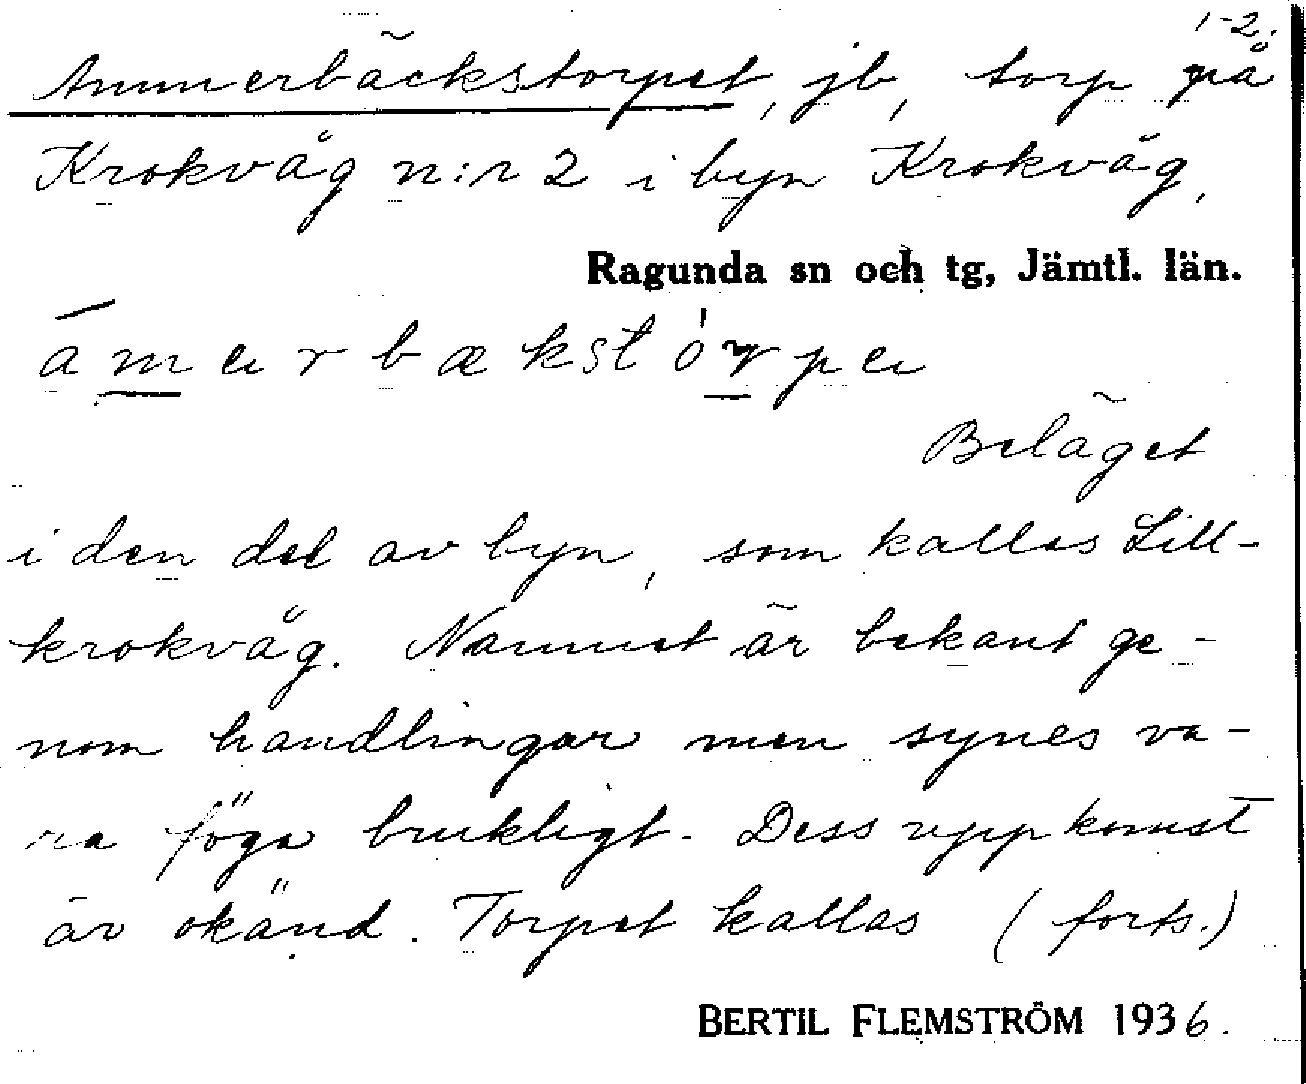 1-2.
Ammerbäckstorpet, jb, torp på
Krokvåg n:r 2 i byn Krokvåg,
Ragunda sn och tg, Jämtl. län.
Beläget
i den del av byn, som kallas Lill-
krokvåg. Namnet är bekant ge-
nom handlingar men synes va-
ra föga brukligt. Dess uppkomst
är okänd. Torpet kallas (forts.)
BERTIL FLEMSTRÖM 1936.